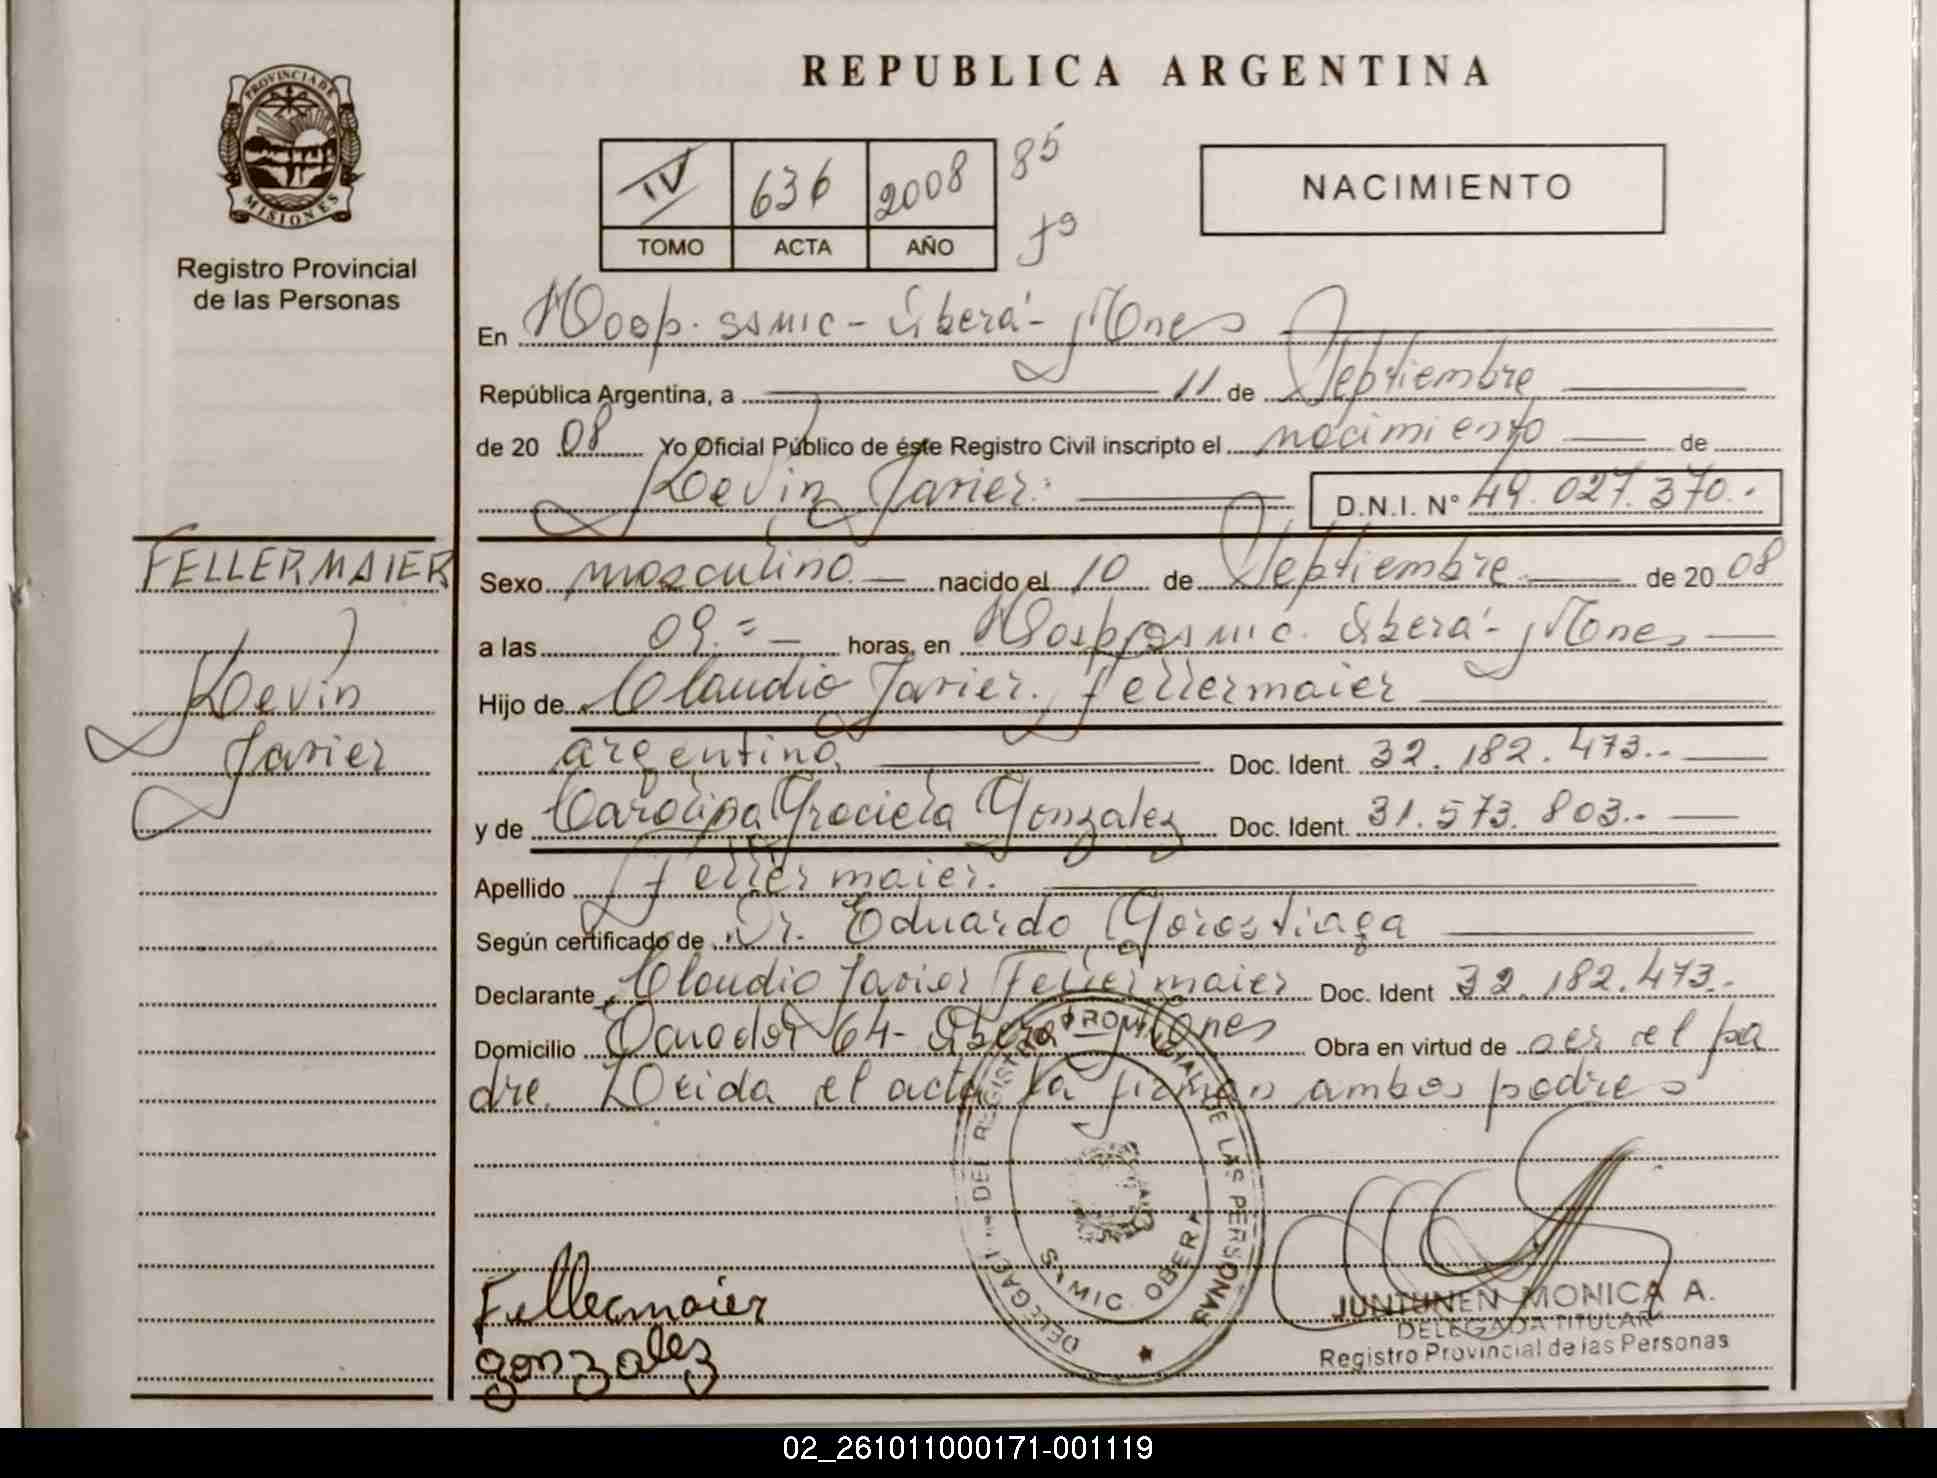 REPUBLICA ARGENTINA
PROVINCIA DE
MISIONES
Registro Provincial
de las Personas
IV 636 2008 85
TOMO ACTA AÑO fº
NACIMIENTO
En Hosp. SAMIC - Oberá - Mnes
República Argentina, a 11 de Septiembre
de 20 08 Yo Oficial Público de éste Registro Civil inscripto el nacimiento de
Kevin Javier. D.N.I. Nº 49.027.370.-
FELLERMAIER
Kevin
Javier
Sexo masculino nacido el 10 de Septiembre de 20 08
a las 09.= horas, en Hosp. samic. Oberá - Mnes
Hijo de Claudio Javier Fellermaier
argentino Doc. Ident. 32.182.473.-
y de Carolina Graciela Gonzalez Doc. Ident. 31.573.803.-
Apellido Fellermaier.
Según certificado de Dr. Eduardo Gorostiaga
Declarante Claudio Javier Fellermaier Doc. Ident 32.182.473.-
Domicilio 64 - Oberá Mnes Obra en virtud de ser el pa
dre. Leida el acta la firman ambos padres
DEL REGISTRO PROVINCIAL DE LAS PERSONAS
SAMIC OBERA
Fellermaier
gonzalez
JUNTUNEN MONICA A.
DELEGADA TITULAR
Registro Provincial de las Personas
02_261011000171-001119